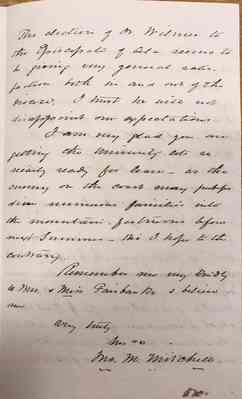 The election of Dr. Wilmer to
the Episcopate of Ala seems to
be giving very general satis-
faction both in and out of the
I trust he will not
disappoint our expectations.
I am very glad you are
getting the University lots so
nearly ready for lease - as the
enemy on the coast may
numerous families into
the mountain before
next Summer - this I hope to the
contrary.
Remember me very kindly
to Mrs. & Miss Fairbanks & believe
me
Very truly
Yrs
Jno. M.